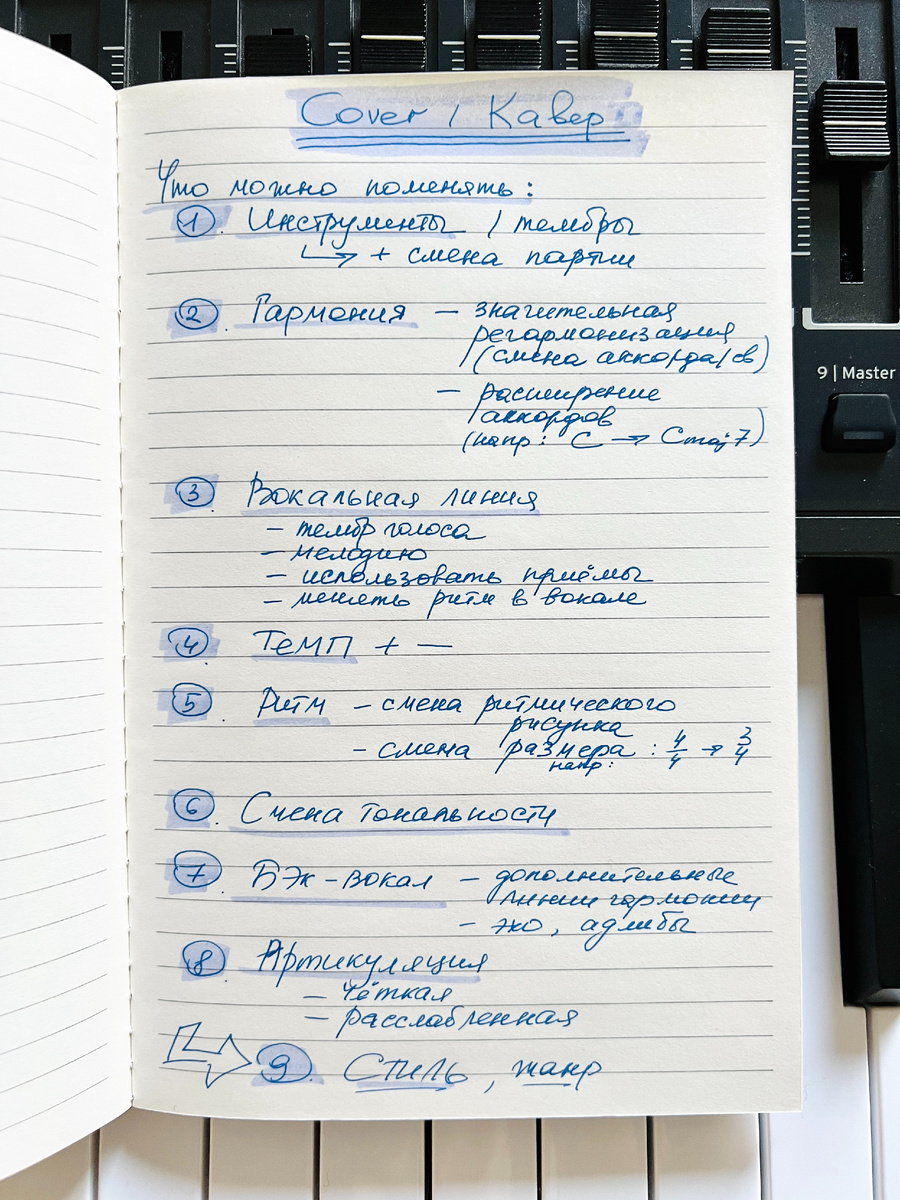 Cover / Кавер
Что можно поменять:
① Инструменты / тембры
↳ + смена партии
② Гармония — значительная
регармонизация
(смена аккорда/ов)
— расширение
аккордов
(напр: C → Cmaj7)
9 | Master
③ Вокальная линия
— тембр голоса
— мелодию
— использовать приёмы
— менять ритм в вокале
④ Темп + —
⑤ Ритм — смена ритмического
рисунка
— смена размера : 4/4 → 3/4
напр:
⑥ Смена тональности
⑦ Бэк-вокал — дополнительные
линии гармонии
— эхо, адлибы
⑧ Артикуляция
— чёткая
— расслабленная
⑨ Стиль, жанр